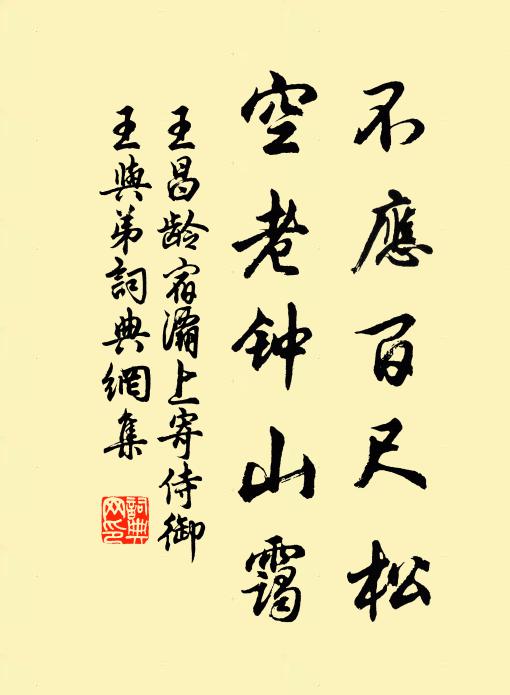 不應百尺松
空老钟山靄
王昌龄宿灞上寄侍御
王與弟詞典網集
詞典
网印